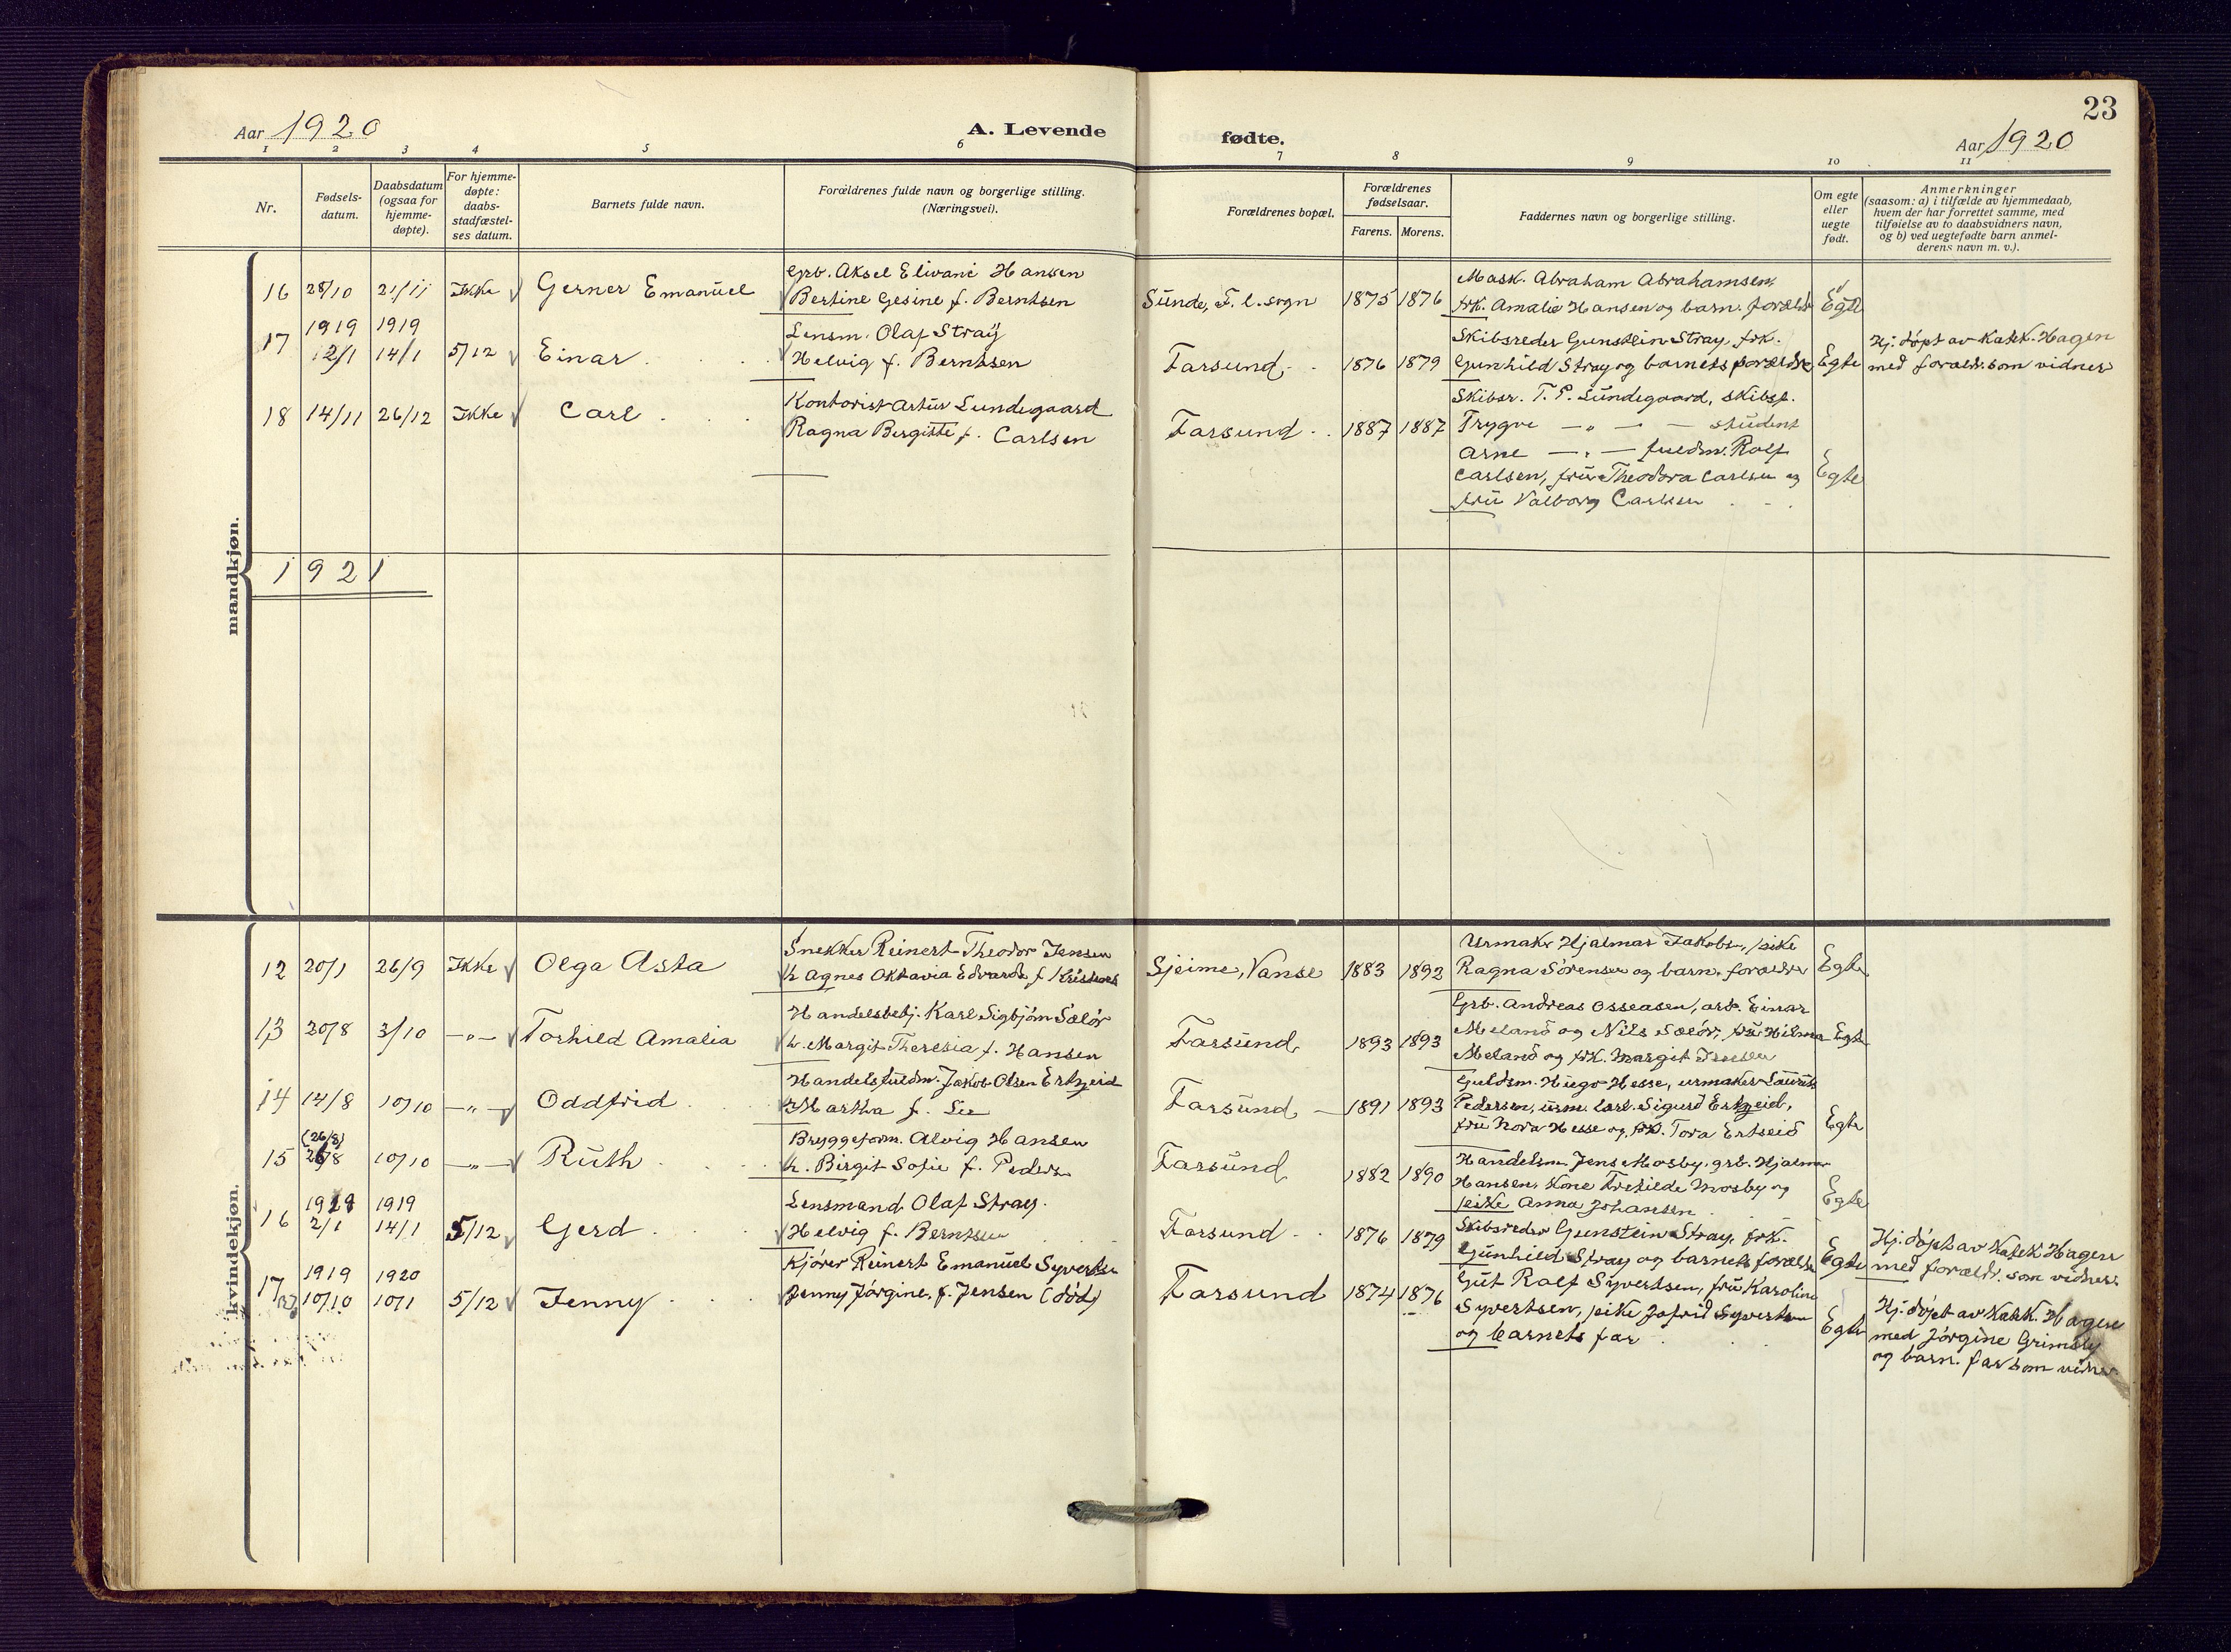 23
Aar 1920
A. Levende
fødte.
Aar 1920
1 2 3 4 5 6 7 8 9 10 11
Nr.
Fødsels-
datum.
Daabsdatum
(ogsaa for
hjemme-
døpte).
For hjemme-
døpte:
daabs-
stadfæstel-
ses datum.
Barnets fulde navn.
Forældrenes fulde navn og borgerlige stilling.
(Næringsvei).
Forældrenes bopæl.
Forældrenes
fødselsaar.
Farens. Morens.
Faddernes navn og borgerlige stilling.
Om egte
eller
uegte
født.
Anmerkninger
(saasom: a) i tilfælde av hjemmedaab,
hvem der har forrettet samme, med
tilføielse av to daabsvidners navn,
og b) ved uegtefødte barn anmel-
derens navn m. v.).
mandkjøn.
16 28/10 21/11 Ikke Gerner Emanuel
Grb. Aksel Elivani Hansen
Bertine Gesine f. Berntsen
Sunde, F. l. sogn 1875 1876
Mask. Abraham Abrahamsen,
frk. Amalie Hansen og barn. foreldr
Egte
17 1919 1919
12/1 14/1 5/12 Einar
Lensm. Olaf Stray
Helvig f. Berntsen
Farsund 1876 1879
Skibsreder Gunstein Stray, frk.
Gunhild Stray og barnets forældre
Egte
Hj. døpt av Katek. Hagen
med forældr. som vidner
18 14/11 26/12 Ikke Carl
Kontorist Artur Lundegaard
Ragna Bergitte f. Carlsen
Farsund 1887 1887
Skibsr. T. P. Lundegaard, skibsf.
Trygve — " — — student
Arne — " — fuldm. Rolf
Carlsen, fru Theodora Carlsen og
fru Valborg Carlsen
Egte
1921
kvindekjøn.
12 20/1 26/9 Ikke Olga Asta
Snekker Reinert Theodor Jensen
h. Agnes Oktavia Edvarda f.
Sjeime, Vanse 1883 1892
Urmaker Hjalmar Jakobs., pike
Ragna Sørensen og barn. forældre
Egte
13 20/8 3/10 — " — Torhild Amalia
Handelsbetj. Karl Sigbjørn Salór
h. Margit Theresia f. Hansen
Farsund 1893 1893
Grb. Andreas Osseasen, arb. Einar
Meland og Nils Salór, fru Hilma
Meland og frk. Margit
Egte
14 14/8 10/10 — " — Oddfrid
Handelsfuldm. Jakob Olsen Ertzeid
h. Martha f. Lie
Farsund 1891 1893
Guldsm. Hugo Hesse, urmaker Laurits
Pedersen, urm. lærl. Sigurd Ertzeid,
fru Nora Hesse og frk. Tora Ertseid
Egte
15 (26/8)
26/8 10/10 — " — Ruth
Bryggeform. Alvig Hansen
h. Birgit Sofie f. Peders
Farsund 1882 1890
Handelsm. Jens Mosby, grb. Hjalmar
Hansen, kone Mosby og
pike Anna Johansen
Egte
16 1919 1919
2/1 14/1 5/12 Gerd
Lensmand Olaf Stray
Helvig f. Berntsen
Farsund 1876 1879
Skibsreder Gunstein Stray, frk.
Gunhild Stray og barnets forældre
Egte
Hj. døpt av Katek Hagen
med forældr. som vidner
17 1919 1920
10/10 10/1 5/12 Jenny
Kjører Reinert Emanuel Syvertsen
Jenny Jørgine f. Jensen (død)
Farsund 1874 1876
Gut Rolf Syvertsen, fru Karoline
Syvertsen, pike Jofrid Syvertsen
og barnets far
Egte
Hj. døpt av Katek. Hagen
med Jørgine Grimsby
og barn. far som vidner